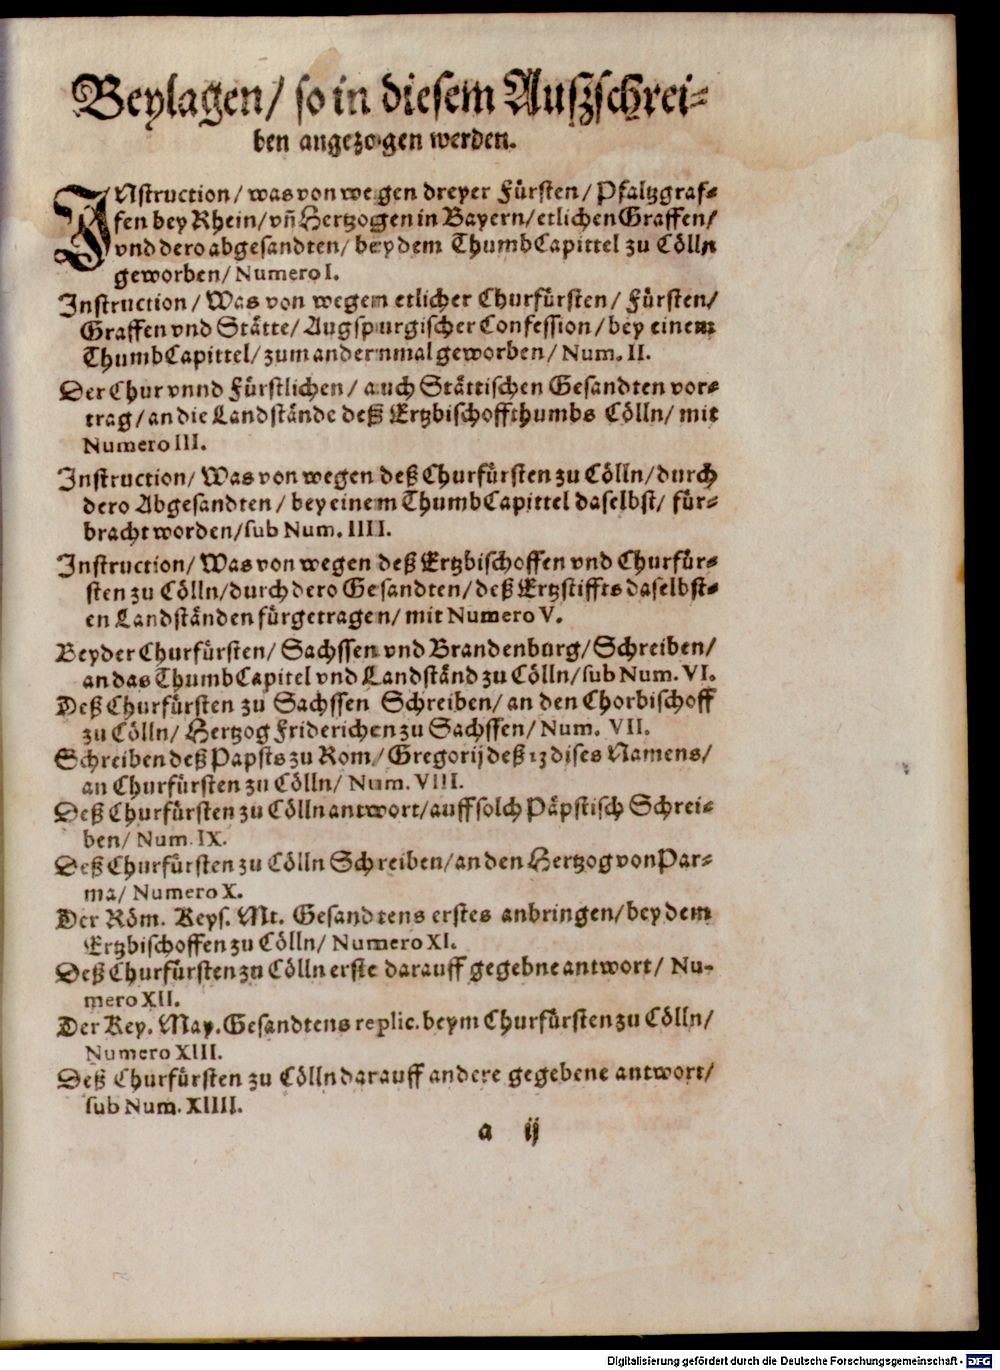 Beylagen/ so in diesem Außschrei-
ben angezogen werden.
INstruction/ was von wegen dreyer Fürsten/ Pfaltzgraf-
fen bey Rhein/ vñ Hertzogen in Bayern/ etlichen Graffen/
vnd dero abgesandten/ bey dem ThumbCapittel zu Cölln
geworben/ Numero I.
Instruction/ Was von wegen etlicher Churfürsten/ Fürsten/
Graffen vnd Stätte/ Augspurgischer Confession/ bey einem
ThumbCapittel/ zum andernmal geworben/ Num. II.
Der Chur vnnd Fürstlichen/ auch Stättischen Gesandten vor-
trag/ an die Landstände deß Ertzbischoffthumbs Cölln/ mit
Numero III.
Instruction/ Was von wegen deß Churfürsten zu Cölln/ durch
dero Abgesandten/ bey einem ThumbCapittel daselbst/ für-
bracht worden/ sub Num. IIII.
Instruction/ Was von wegen deß Ertzbischoffen vnd Churfür-
sten zu Cölln/ durch dero Gesandten/ deß Ertzstiffts daselbst-
en Landständen fürgetragen/ mit Numero V.
Beyder Churfürsten/ Sachssen vnd Brandenburg/ Schreiben/
an das ThumbCapitel vnd Landständ zu Cölln/ sub Num. VI.
Deß Churfürsten zu Sachssen Schreiben/ an den Chorbischoff
zu Cölln/ Hertzog Friderichen zu Sachssen/ Num. VII.
Schreiben deß Papsts zu Rom/ Gregorij deß 13 dises Namens/
an Churfürsten zu Cölln/ Num. VIII.
Deß Churfürsten zu Cölln antwort/ auff solch Päpstisch Schrei-
ben/ Num. IX.
Deß Churfürsten zu Cölln Schreiben/ an den Hertzog von Par-
ma/ Numero X.
Der Röm. Keys. Mt. Gesandtens erstes anbringen/ bey dem
Ertzbischoffen zu Cölln/ Numero XI.
Deß Churfürsten zu Cölln erste darauff gegebne antwort/ Nu-
mero XII.
Der Key. May. Gesandtens replic. beym Churfürsten zu Cölln/
Numero XIII.
Deß Churfürsten zu Cölln darauff andere gegebene antwort/
sub Num. XIIII.
a ij
Digitalisierung gefördert durch die Deutsche Forschungsgemeinschaft - DFG